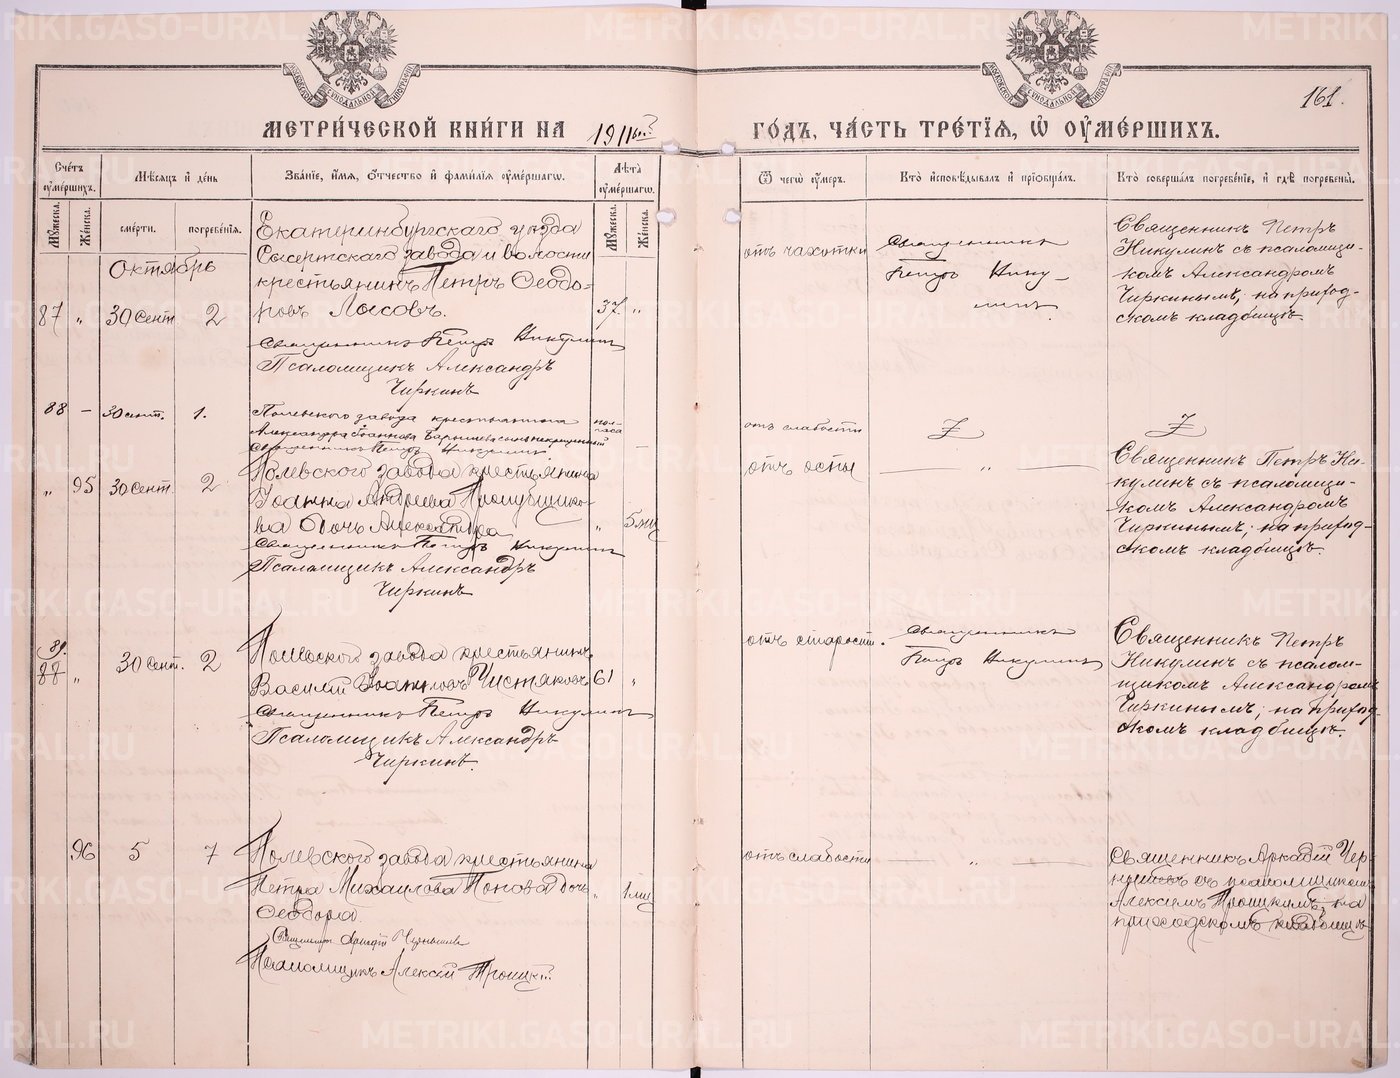 МЕТРИ́ЧЕСКОЙ КНИ́ГИ НА 1911
ГО́ДЪ, ЧА́СТЬ ТРЕ́ТІѦ, Ѽ ОУМЕ́РШИХЪ.
161.
Сче́тъ оуме́ршихъ.
Мѣ́сяцъ и҆ де́нь
Зва́ніе, и҆́мѧ, ѻ҆́тчество и҆ фами́лїѧ оуме́ршагѡ.
Лѣ́та оуме́ршагѡ.
Ѿ чегѡ̀ оу́меръ.
Кто̀ и҆сповѣ́дывалъ и҆ прїѡбща́лъ.
Кто̀ соверша́лъ погребе́нїе, и҆ гдѣ̀ погребены̀.
Мꙋ́жеска.
Же́нска.
сме́рти.
погребе́нїѧ.
Мꙋ́жеска.
Же́нска.
Октябрь
87 " 30 Сент 2
Екатеринбургскаго уѣзда
Сысертскаго завода и волости
крестьянинъ Петръ Ѳеодо-
ровъ Лосовъ.
37. "
Священникъ Петръ Никулинъ
Псаломщикъ Александръ
Чиркинъ
отъ чахотки
Священникъ
Петръ Нику-
линъ.
Священникъ Петръ
Никулинъ съ псаломщи-
комъ Александромъ
Чиркинымъ, на приход-
скомъ кладбищѣ.
88 – 30 сент. 1.
Полевского завода крестьянина
Александра Іоаннова сынъ некрещеный
пол-
часа
–
Священникъ Петръ Никулинъ
отъ слабости
" 95 30 Сент 2
Полевского завода крестьянина
Іоанна Андреева
ва дочь Александра
" 5 мц
Священникъ Петръ Никулинъ
Псаломщикъ Александръ
Чиркинъ
отъ оспы
— " —
Священникъ Петръ Ни-
кулинъ съ псаломщи-
комъ Александромъ
Чиркинымъ; на приход-
скомъ кладбищѣ.
89.
88 " 30 Сент. 2
Полевского завода крестьянинъ
Василій Іоанновъ Чистяковъ
61 "
Священникъ Петръ Никулинъ
Псаломщикъ Александръ
Чиркинъ.
отъ старости.
Священникъ
Петръ Никулинъ
Священникъ Петръ
Никулинъ съ псалом-
щикомъ Александромъ
Чиркинымъ; на приход-
скомъ кладбищѣ.
96 5 7
Полевского завода крестьянина
Петра Михаилова Попова дочь
Ѳеодора.
" 1 мц
Священникъ Аркадій Чернышевъ
Псаломщикъ Алексій Троицкій
отъ слабости
— " —
Священникъ Аркадій Чер-
нышевъ съ псаломщикомъ
Алексіемъ Троицкимъ, на
приходскомъ кладбищѣ
METRIKI.GASO-URAL.RU